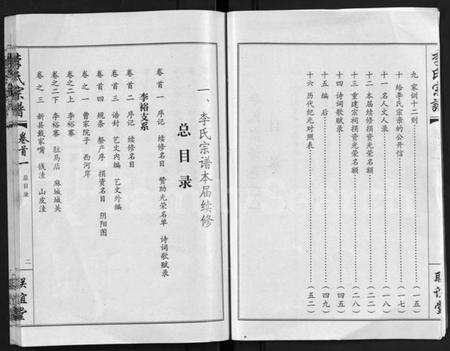 李氏宗谱
九 家训十二则……(一五)
十 给李氏宗亲的公开信……(一七)
十一 名人文人录……(一八)
十二 本届续修撰资光荣名额……(二二)
十三 重建宗祠撰资光荣名额……(四二)
十四 诗词歌赋录……(四五)
十五 编 后……(四九)
十六 历代纪元对照表……(五二)
一、李氏宗谱本届续修
总 目 录
卷首一 序记 续修名目 赞助光荣名单 诗词歌赋录
李裕支系
卷首二 序记 续修名目
卷首三 诰封 艺文内编 艺文外编
卷首四 规条 祭产序 撰资名目 阴阳图
卷之一 曹家院子 西河岸
卷之二上 李裕寨
卷之二下 李裕寨 驻马店 麻城城关
卷之三 新县戴家嘴 钱洼 山皮洼
李氏宗谱
卷首一
总目录
二